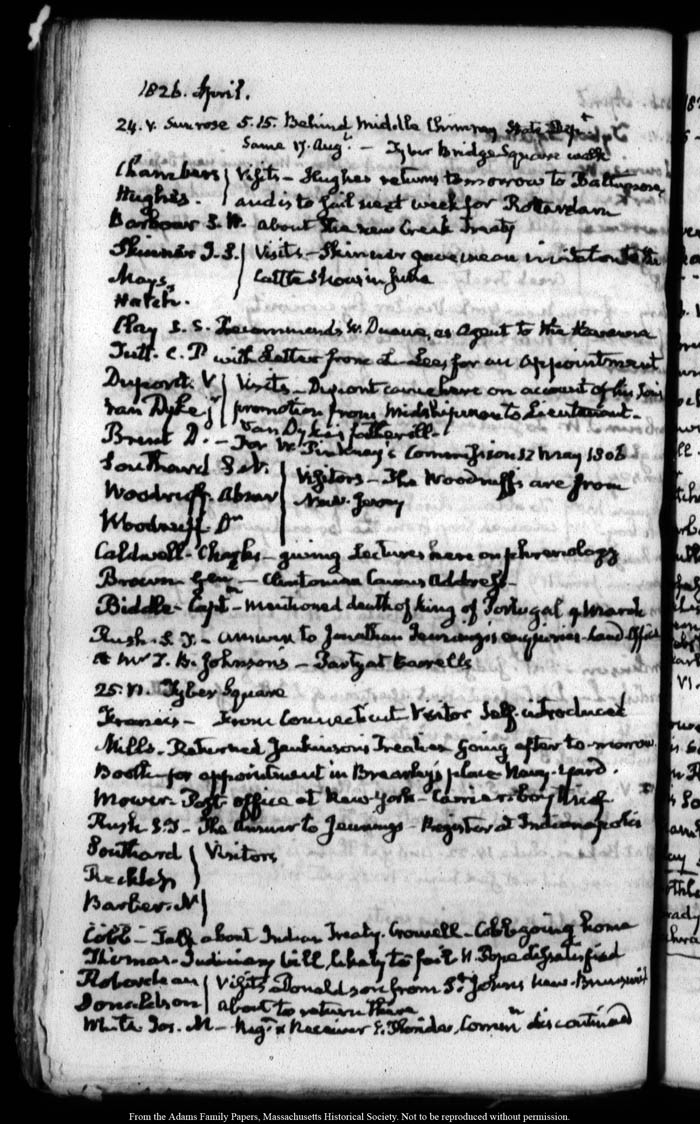 1826. April.
24. V. Sun rose 5.15. Behind Middle Chimney State Dept
Same 17. Aug. — Tyber Bridge Square walk
Chambers Visits — Hughes returns tomorrow to Baltimore,
Hughes. and is to sail next week for Rotterdam
Barbour S. W. about the new Creek Treaty
Skinner J. S. Visits — Skinner gave me an invitation to the
Mays, Cattle Show in June
Hatch.
Clay S. S. Recommends W. Duane, as Agent to the Havanna
Tutt. C. P. with Letter from Lee for an Appointment
Dupont. V Visits — Dupont came here on account of his Son's
Van Dyke jr promotion from Midshipman to Lieutenant —
Van Dyke's father ill —
Brent D. — For W. Pinkney's Commission 12 May 1806
Southard S. N. Visitors — The Woodruffs are from
Woodruff. Abner New-Jersey
Woodruff Dr
Caldwell — Charles — giving Lectures here on phrenology
Brown Genl — Clintonian Caucus Address —
Biddle — Capt — mentioned death of king of Portugal 9 March
Rush. S. T. — answer to Jonathan Jennings's enquiries Land Office
At Mr J. B. Johnson's — Party at
25. VI. Tyber Square
Francis — From Connecticut Visitor Self-introduced
Mills. Returned Treatise Going after to-morrow
Booth — for appointment in Brearley's place Navy-Yard.
Mower — Post office at New-York — Carriers boy
Rush S. T — The Answer to Jennings — Register at Indianapolis
Southard Visitors
Reckless
Barber. N
Cobb — Talk about Indian Treaty. Crowell — Cobb going home
Thomas — Judiciary bill, likely to fail W. Pope dissatisfied
Roberdeau Visits Donaldson from St. Johns New-Brunswick
Donaldson about to return there
White Jos. M — Regr & Receiver E. Florida, Commn discontinued
From the Adams Family Papers, Massachusetts Historical Society. Not to be reproduced without permission.